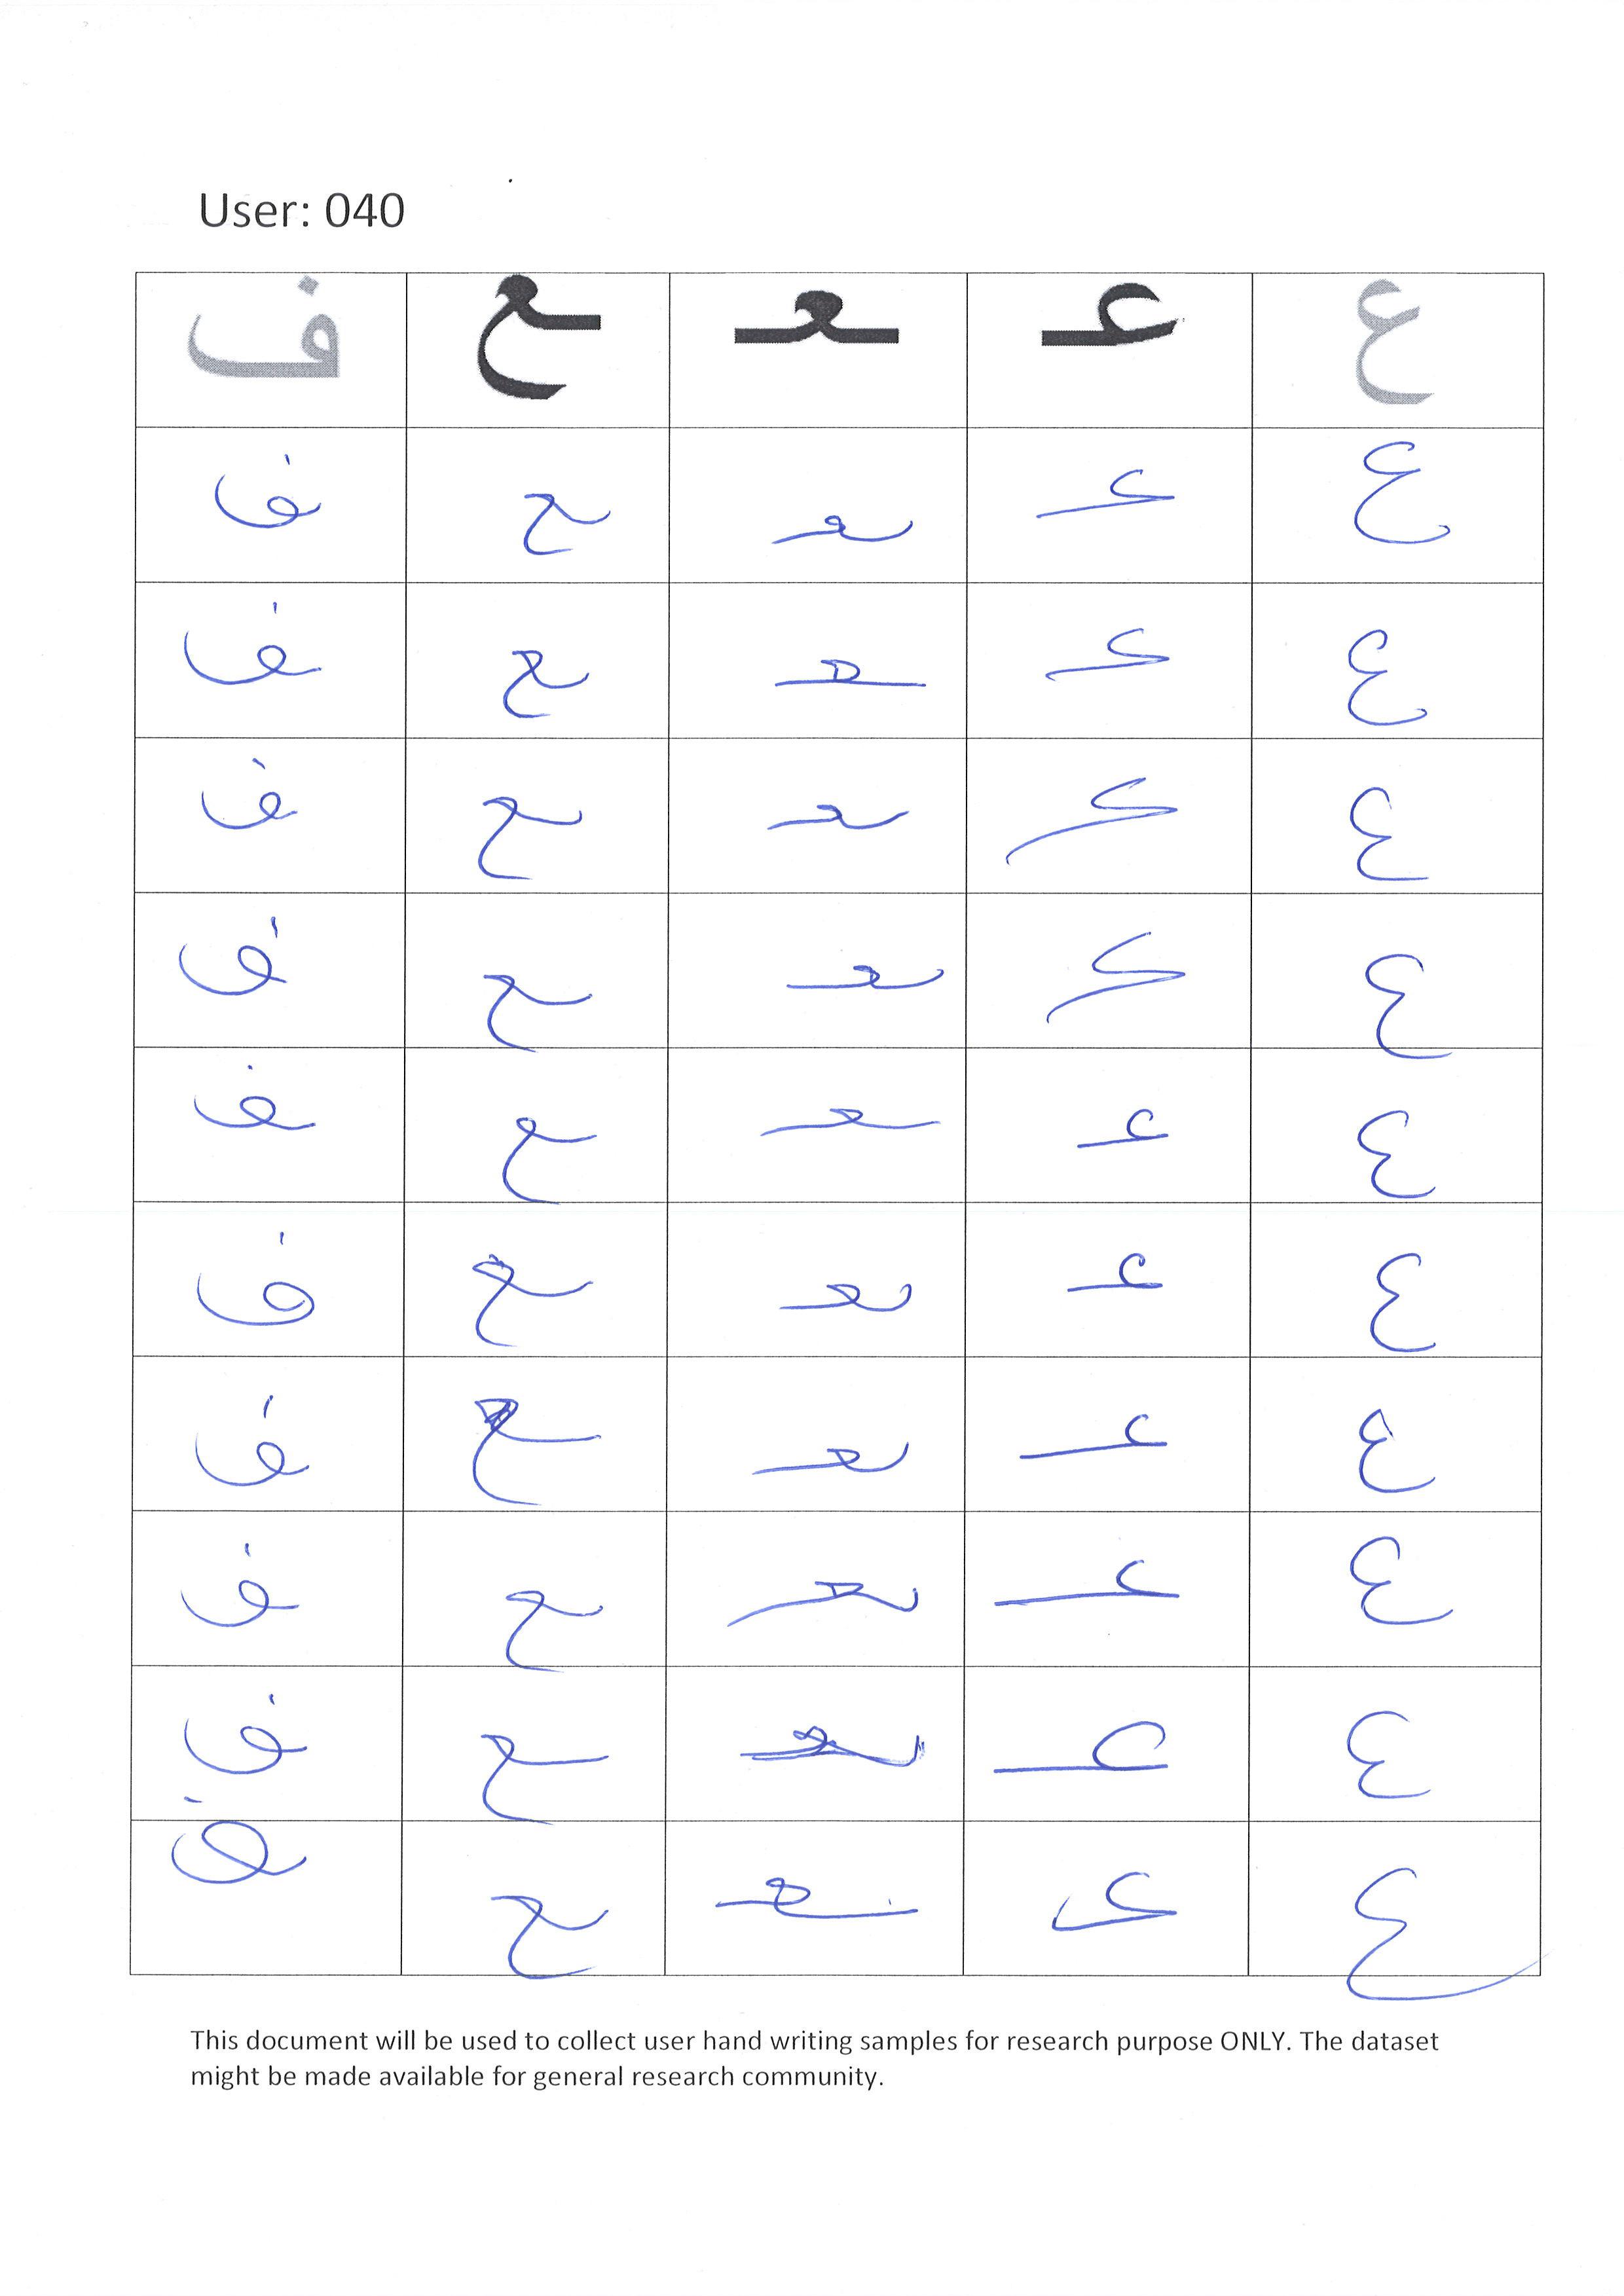 User: 040
ع عـ ـعـ ـع ف
ع عـ ـعـ ـع ف
ع عـ ـعـ ـع ف
ع عـ ـعـ ـع ف
ع عـ ـعـ ـع ف
ع عـ ـعـ ـع ف
ع عـ ـعـ ـع ف
ع عـ ـعـ ـع ف
ع عـ ـعـ ـع ف
ع عـ ـعـ ـع ف
ع عـ ـعـ ـع ف
This document will be used to collect user hand writing samples for research purpose ONLY. The dataset
might be made available for general research community.